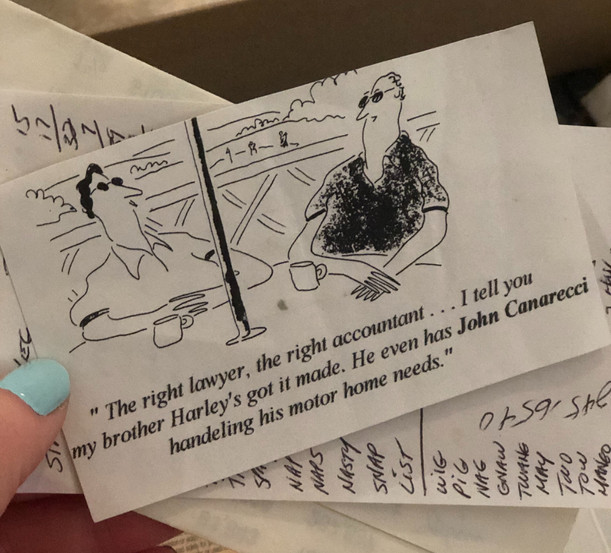 " The right lawyer, the right accountant . . . I tell you
my brother Harley's got it made. He even has John Canarecci
handeling his motor home needs."
15
17
32
7
NAP
NAPS
NASTY
SNAP
LIST
WIG
PIG
NAG
GNAW
TWANG
MAY
TWO
TOW